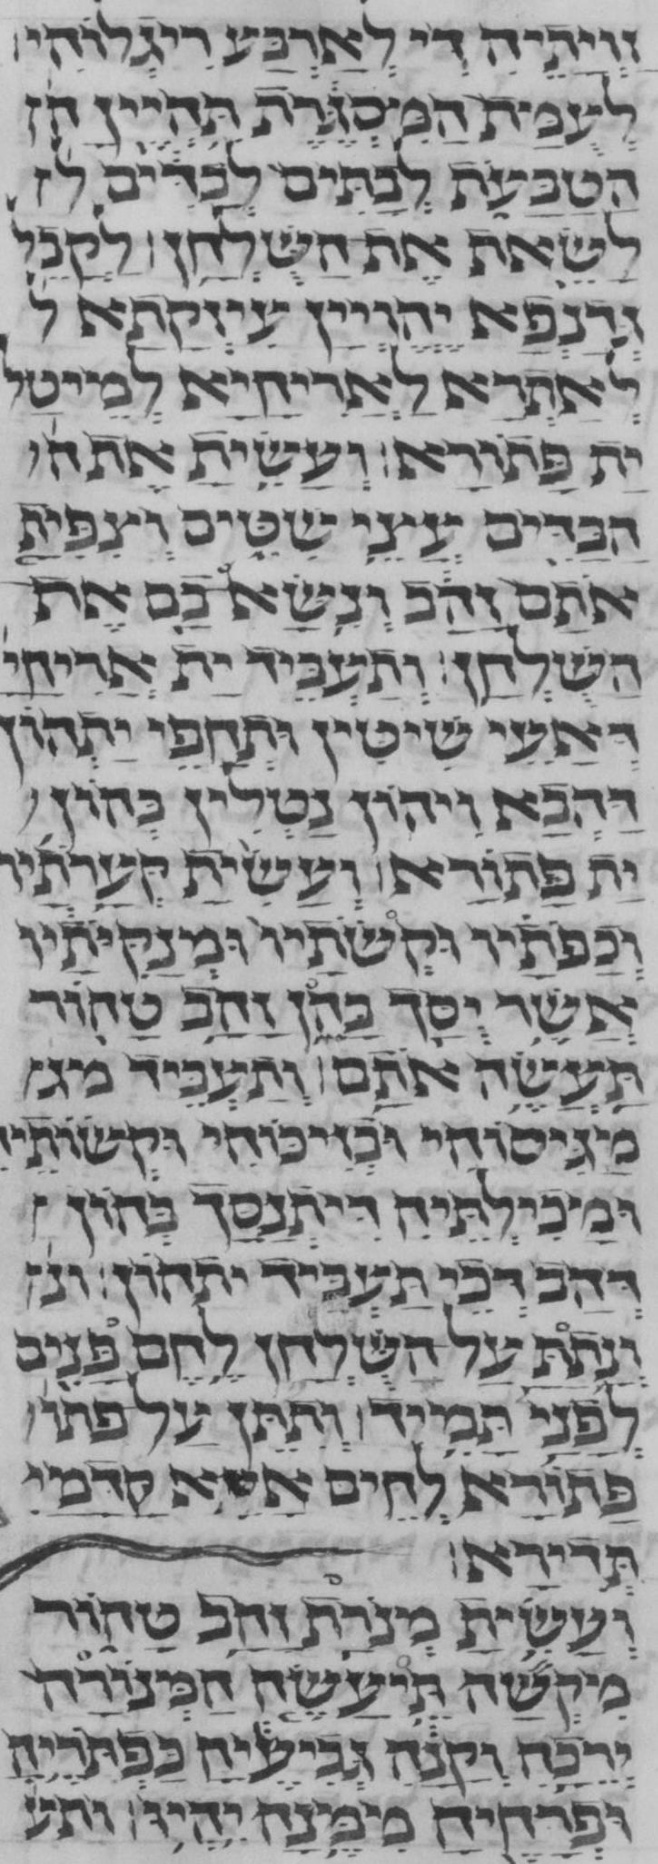 זוויתיה די לארבע ריגלוהי׃
לעמית המיסגרת תהיין הן
הטבעת לבתים לבדים ל
לשאת את השלחן׃ לקבל
גדנפא יהויין עיזקתא ל
לאתרא לאריחיא למיטל
ית פתורא׃ ועשית את ה
הבדים עצי שטים וצפית
אתם זהב ונשא בם את
השלחן׃ ותעביד ית אריחי
דאעי שיטין ותחפי יתהון
דהבא ויהון נטלין בהון
ית פתורא׃ ועשית קערתיו
וכפתיו וקשותיו ומנקיתיו
אשר יסך בהן זהב טהור
תעשה אתם׃ ותעביד מג
מגיסוהי ובזיכוהי וקשותיה
ומכילתיה דיתנסך בהון
דהב דכי תעביד יתהון׃ ונ
ונתת על השלחן לחם פנים
לפני תמיד׃ ותתן על פתו
פתורא לחים אפיא קדמי
תדירא׃
ועשית מנרת זהב טהור
מיקשה תיעשה המנורה
ירכה וקנה גביעיה כפתריה
ופרחיה מימנה יהיו׃ ותע